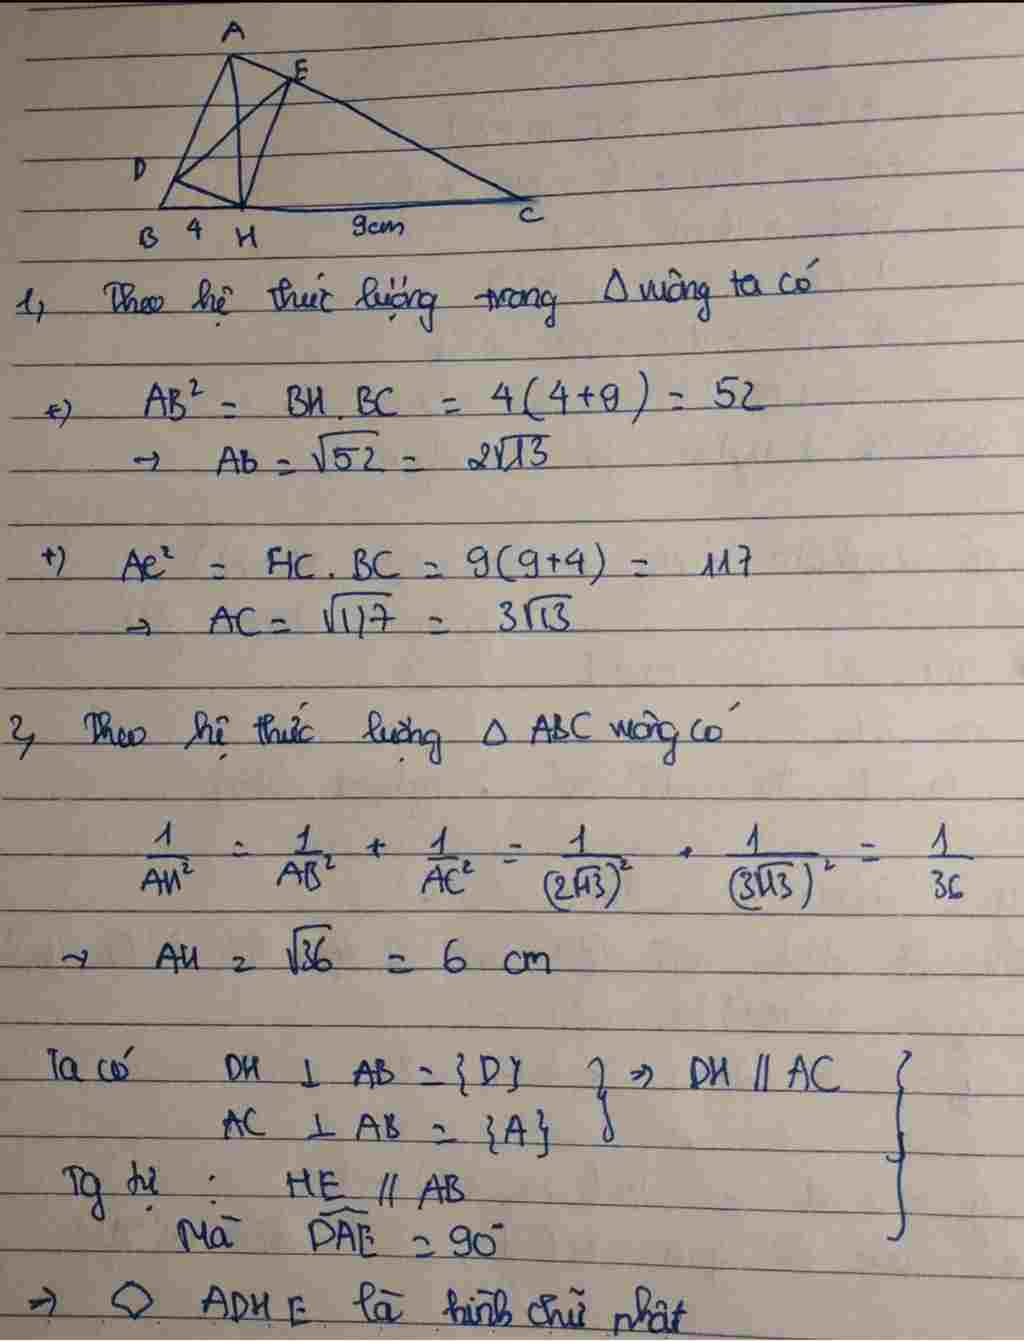 A
E
D
B 4 H 9cm C
1, Theo hệ thức lượng trong Δ vuông ta có
+) AB² = BH . BC = 4(4+9) = 52
→ AB = √52 = 2√13
+) AC² = HC . BC = 9(9+4) = 117
→ AC = √117 = 3√13
2, Theo hệ thức lượng Δ ABC vuông có
1/AH² = 1/AB² + 1/AC² = 1/(2√13)² + 1/(3√13)² = 1/36
→ AH = √36 = 6 cm
Ta có DH ⊥ AB = {D} } => DH // AC }
AC ⊥ AB = {A}
Tg tự : HE // AB
Mà \widehat{DAE} = 90°
=> ◇ ADHE là hình chữ nhật